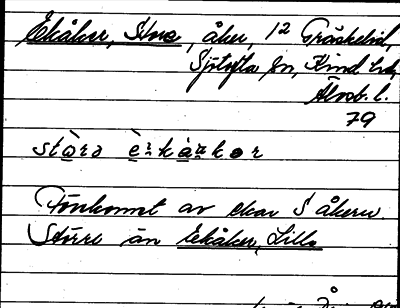 Ekåker, Stora, åker, 12 Gräskebol,
Sjötofta sn, Kind hd,
Älvsb. l.
79
stòra è:kàkor
Förekomst av ekar S åkern
Större än Ekåker, Lilla